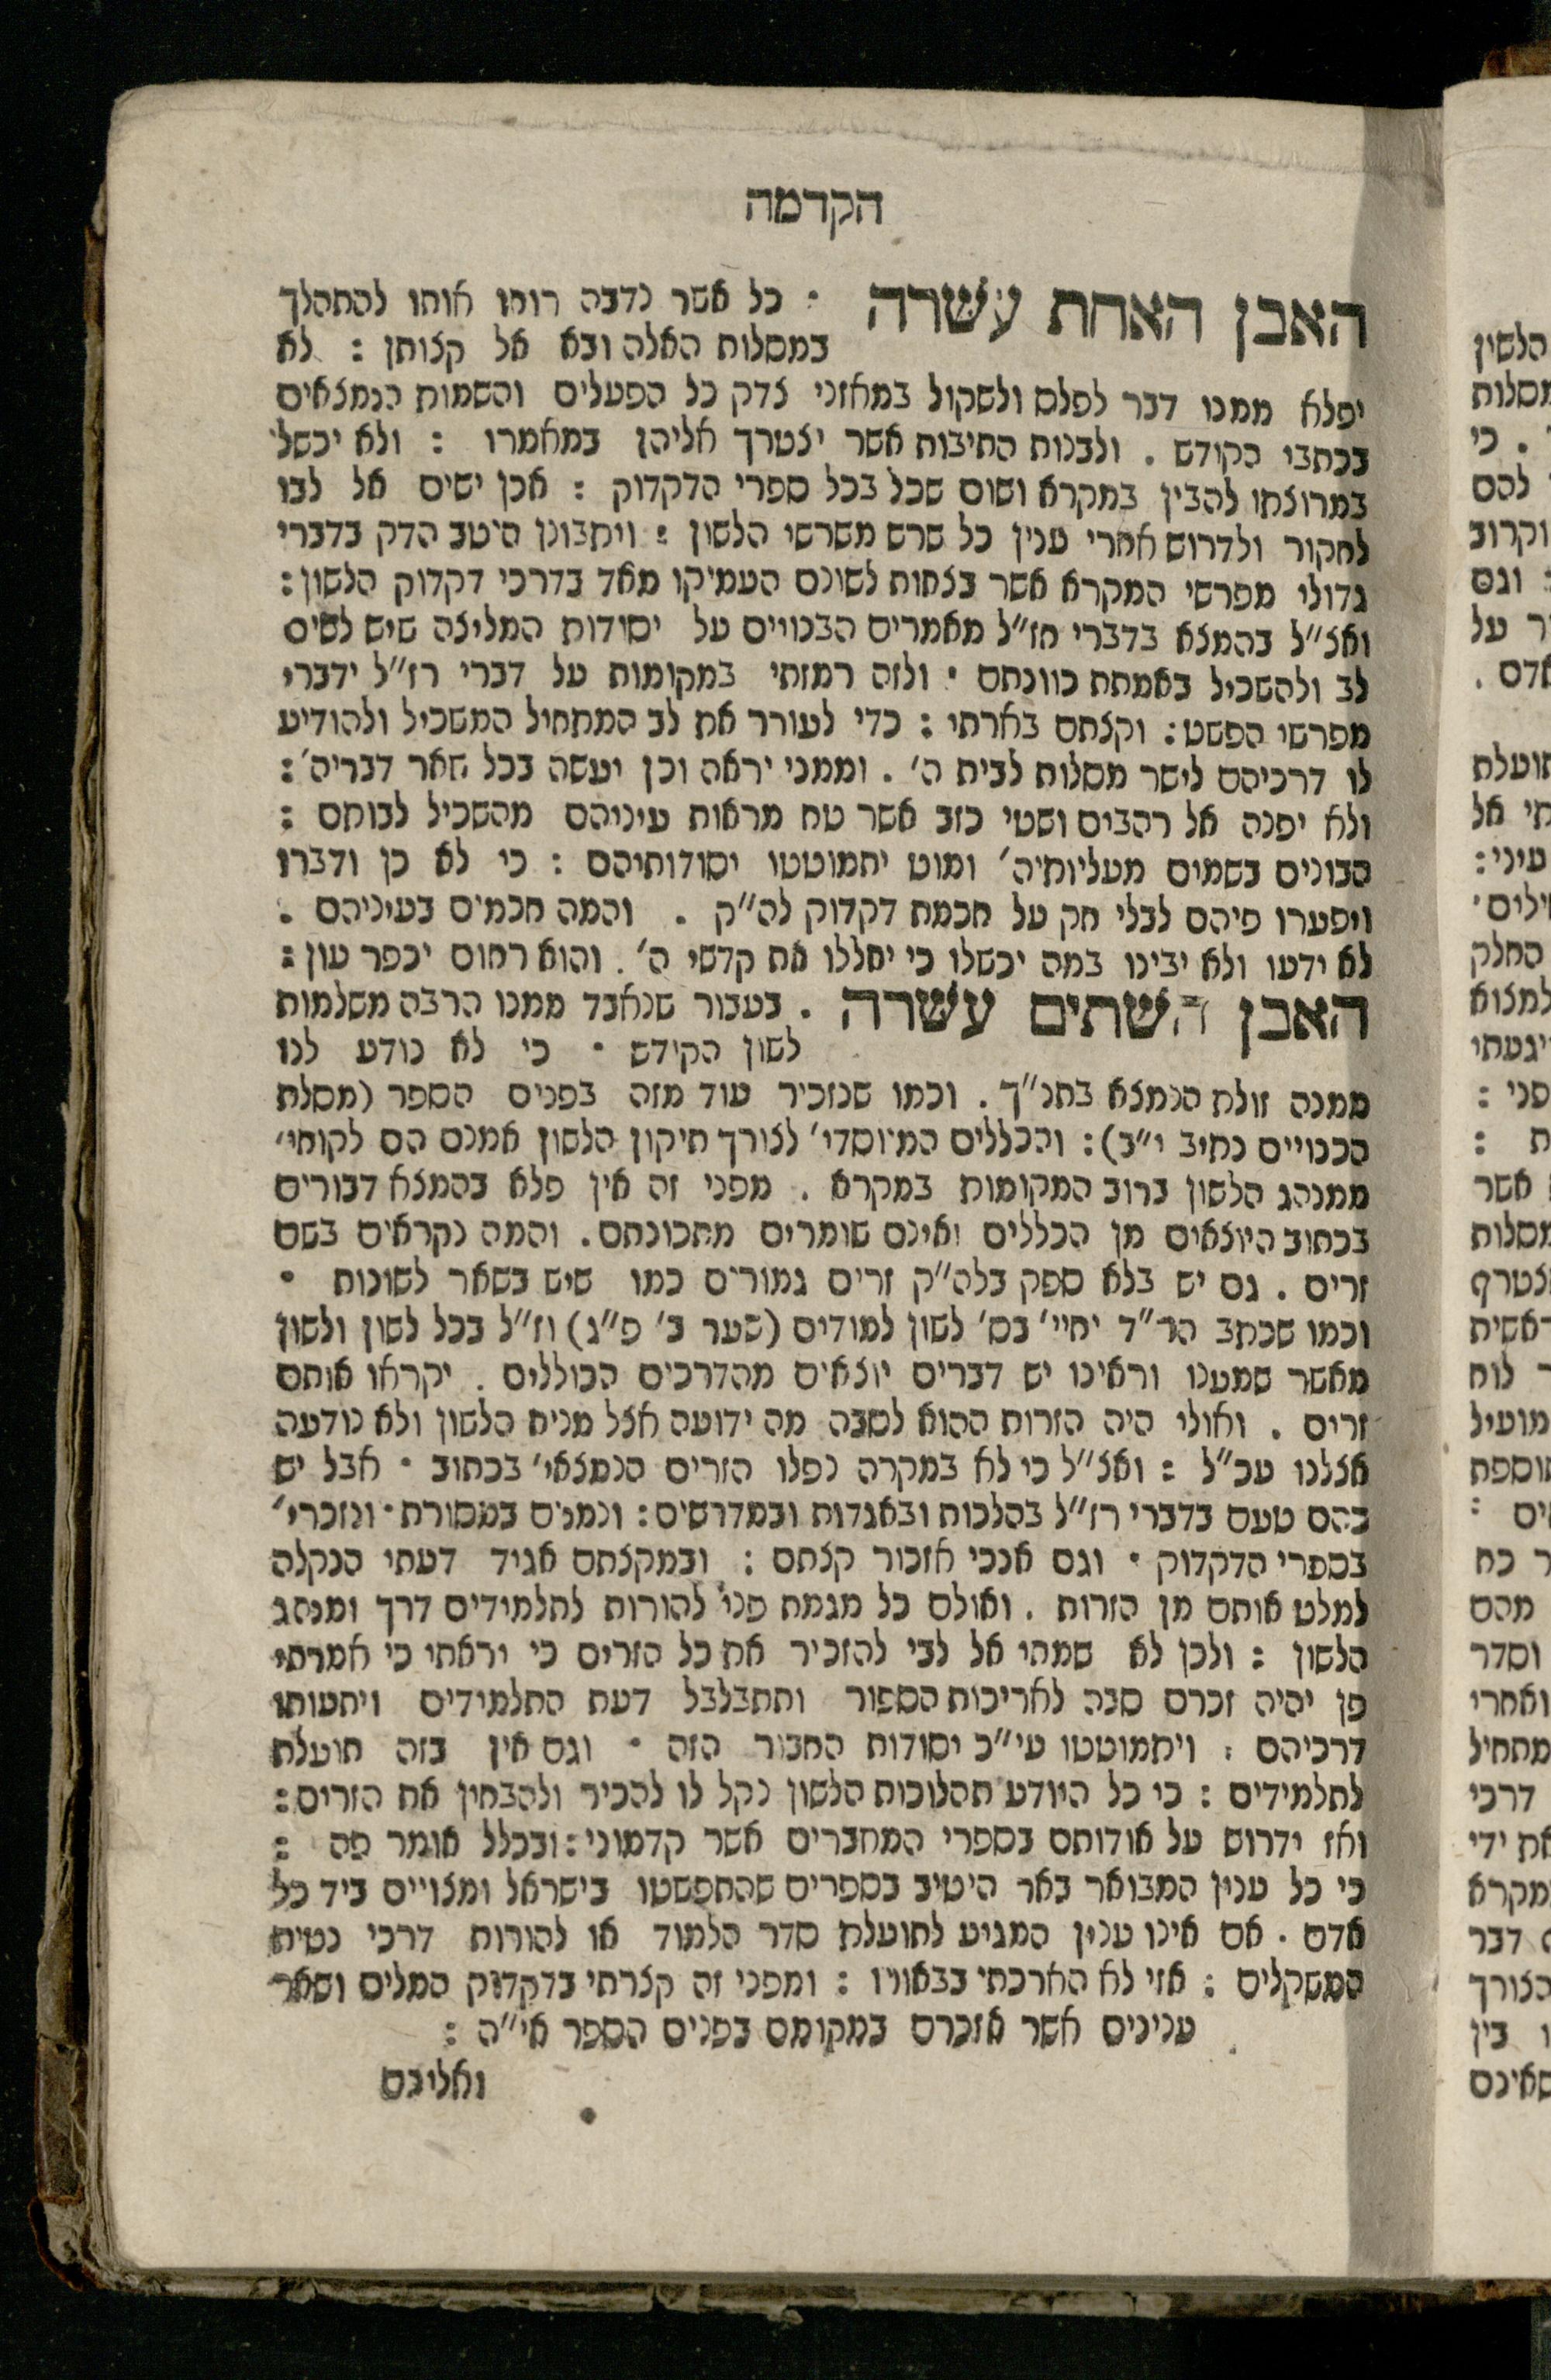 הקדמה
האבן האחת עשרה · כל אשר נדבה רוחו אותו להתהלך
במסלות האלה ובא אל קצותן : לא
יפלא ממנו דבר לפלס ולשקול במאזני צדק כל הפעלים והשמות הנמצאים
בכתבי הקודש . ולבנות התיבות אשר יצטרך אליהן במאמרו : ולא יכשל
במרוצתו להבין במקרא ושום שכל בכל ספרי הדקדוק : אכן ישים אל לבו
לחקור ולדרוש אחרי ענין כל שרש משרשי הלשון : ויתבונן היטב הדק בדברי
גדולי מפרשי המקרא אשר בצחות לשונם העמיקו מאד בדרכי דקדוק הלשון :
ואצ״ל בהמצא בדברי חז״ל מאמרים הבנויים על יסודות המליצה שיש לשים
לב ולהשכיל באמתת כוונתם · ולזה רמזתי במקומות על דברי רז״ל ידברי
מפרשי הפשט : וקצתם בארתי : כדי לעורר את לב המתחיל המשכיל ולהודיע
לו דרכיהם לישר מסלות לבית ה׳ . וממני יראה וכן יעשה בכל שאר דבריה׳ :
ולא יפנה אל רהבים ושטי כזב אשר טח מראות עיניהם מהשכיל לבותם :
הבונים בשמים מעליותיה׳ ומוט יתמוטטו יסודותיהם : כי לא כן ודברו
ויפערו פיהם לבלי חק על חכמת דקדוק לה״ק . והמה חכמים בעיניהם .
לא ידעו ולא יבינו במה יכשלו כי יחללו את קדשי ה׳ . והוא רחום יכפר עון :
האבן השתים עשרה . בעבור שנאבד ממנו הרבה משלמות
לשון הקידש · כי לא נודע לנו
ממנה זולת הנמצא בתנ״ך . וכמו שנזכיר עוד מזה בפנים הספר (מסלת
הכנויים נתיב י״ב) : והכללים המיוסדי׳ לצורך תיקון הלשון אמנם הם לקוחי׳
ממנהג הלשון ברוב המקומות במקרא . מפני זה אין פלא בהמצא דבורים
בכתוב היוצאים מן הכללים ואינם שומרים מתכונתם . והמה נקראים בשם
זרים . גם יש בלא ספק בלה״ק זרים גמורים כמו שיש בשאר לשונות ·
וכמו שכתב הר״ד יחיי׳ בס׳ לשון למודים (שער ב׳ פ״ג) וז״ל בכל לשון ולשון
מאשר שמענו וראינו יש דברים יוצאים מהדרכים הכוללים . יקראו אותם
זרים . ואולי היה הזרות ההוא לסבה מה ידועה אצל מניח הלשון ולא נודעה
אצלנו עכ״ל : ואצ״ל כי לא במקרה נפלו הזרים הנמצאי׳ בכתוב · אבל יש
בהם טעם בדברי רז״ל בהלכות ובאגדות ובמדרשים : ונמנים במסורת · ונזכרי׳
בספרי הדקדוק · וגם אנכי אזכור קצתם : ובמקצתם אגיד דעתי הנקלה
למלט אותם מן הזרות . ואולם כל מגמת פני להורות לתלמידים דרך ומנהג
הלשון : ולכן לא שמתי אל לבי להזכיר את כל הזרים כי יראתי כי אמרתי
פן יהיה זכרם סבה לאריכות הספור ותתבלבל דעת התלמידים ויתעותו
דרכיהם : ויתמוטטו עי״כ יסודות החבור הזה · וגם אין בזה תועלת
לתלמידים : כי כל היודע תהלוכות הלשון נקל לו להכיר ולהבחין את הזרים :
ואז ידרוש על אודותם בספרי המחברים אשר קדמוני : ובכלל אומר פה :
כי כל ענין המבואר באר היטיב בספרים שהתפשטו בישראל ומצויים ביד כל
אדם · אם אינו ענין המגיע לתועלת סדר הלמוד או להורות דרכי נטית
המשקלים : אזי לא הארכתי בבאורו : ומפני זה קצרתי בדקדוק המלים ושאר
ענינים אשר אזכרם במקומם בפנים הספר אי״ה :
ואליכם
הלשין
מסלות
. כי
להם
וקרוב
: וגם
ר על
אדם .
תועלת
תי אל
עיני :
החלק
למצוא
יגעתי
פני :
ת :
אשר
מסלות
צטרף
ראשית
ר לוח
מועיל
תוספת
ים :
ר כח
מהם
וסדר
ואחרי
מתחיל
דרכי
את ידי
מקרא
דבר
הצורך
ו בין
שאינם